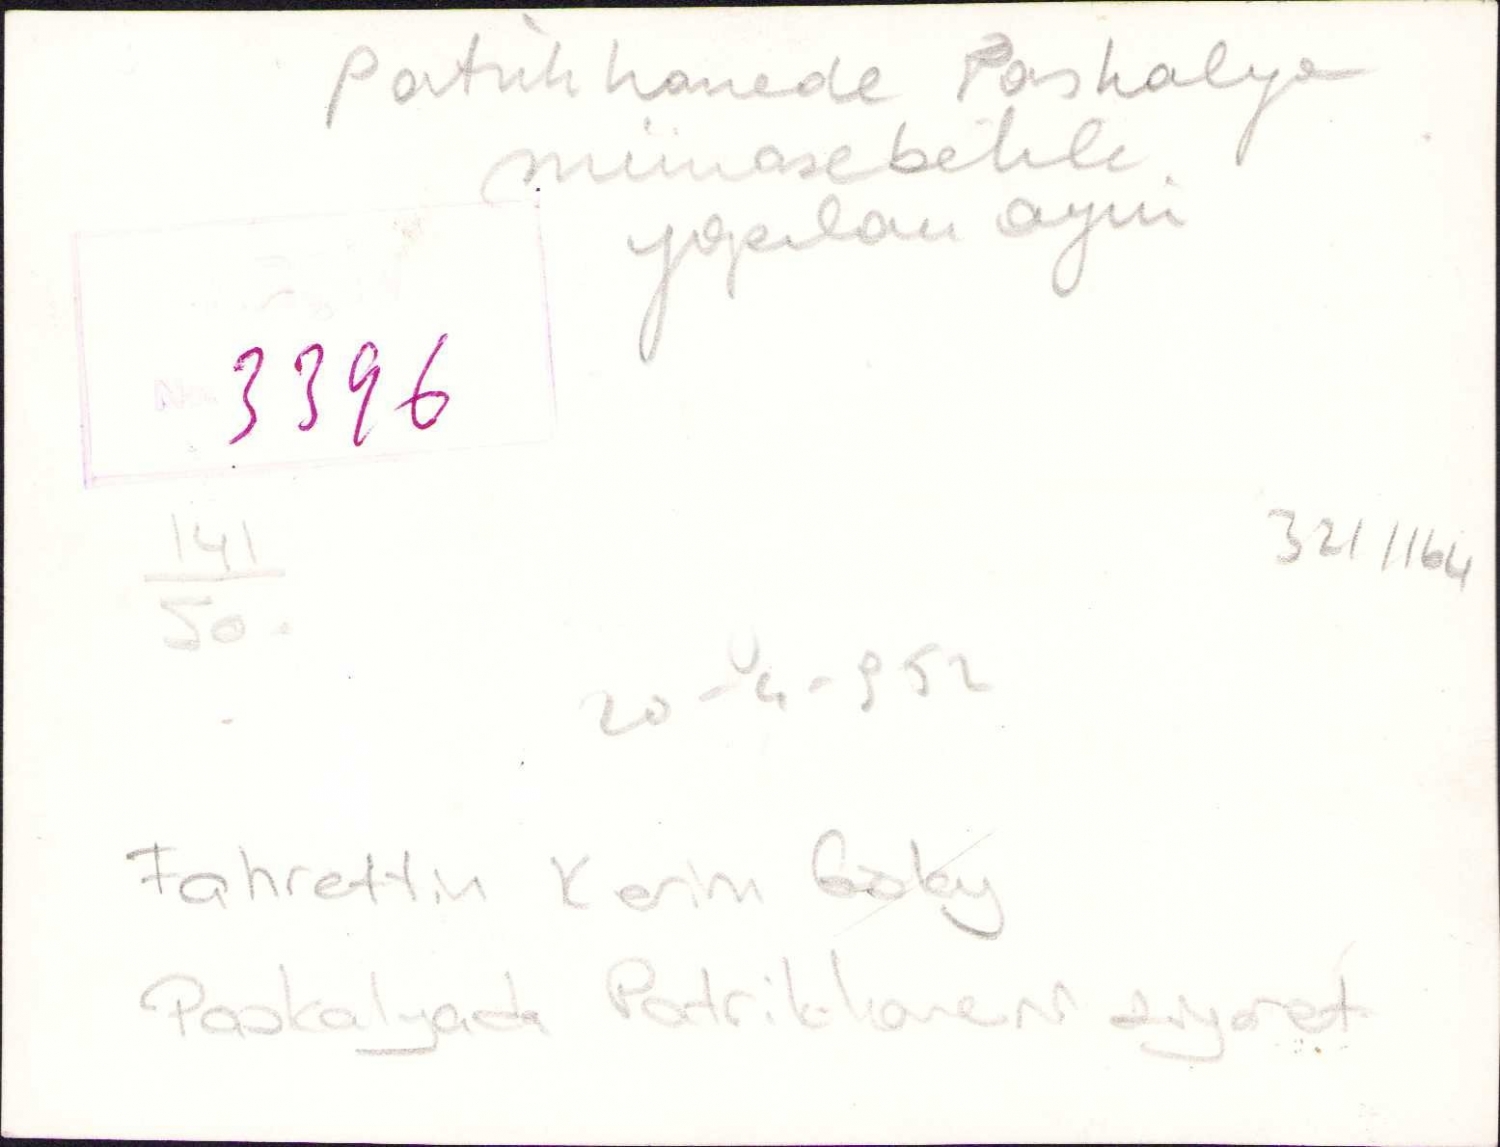 Patrikhanede Paskalya
münasebetile
yapılan ayin
No. 3396
141
50.
321/164
20-4-952
Fahrettin Kerim Gökay
Paskalyada Patrikhaneni ziyaret